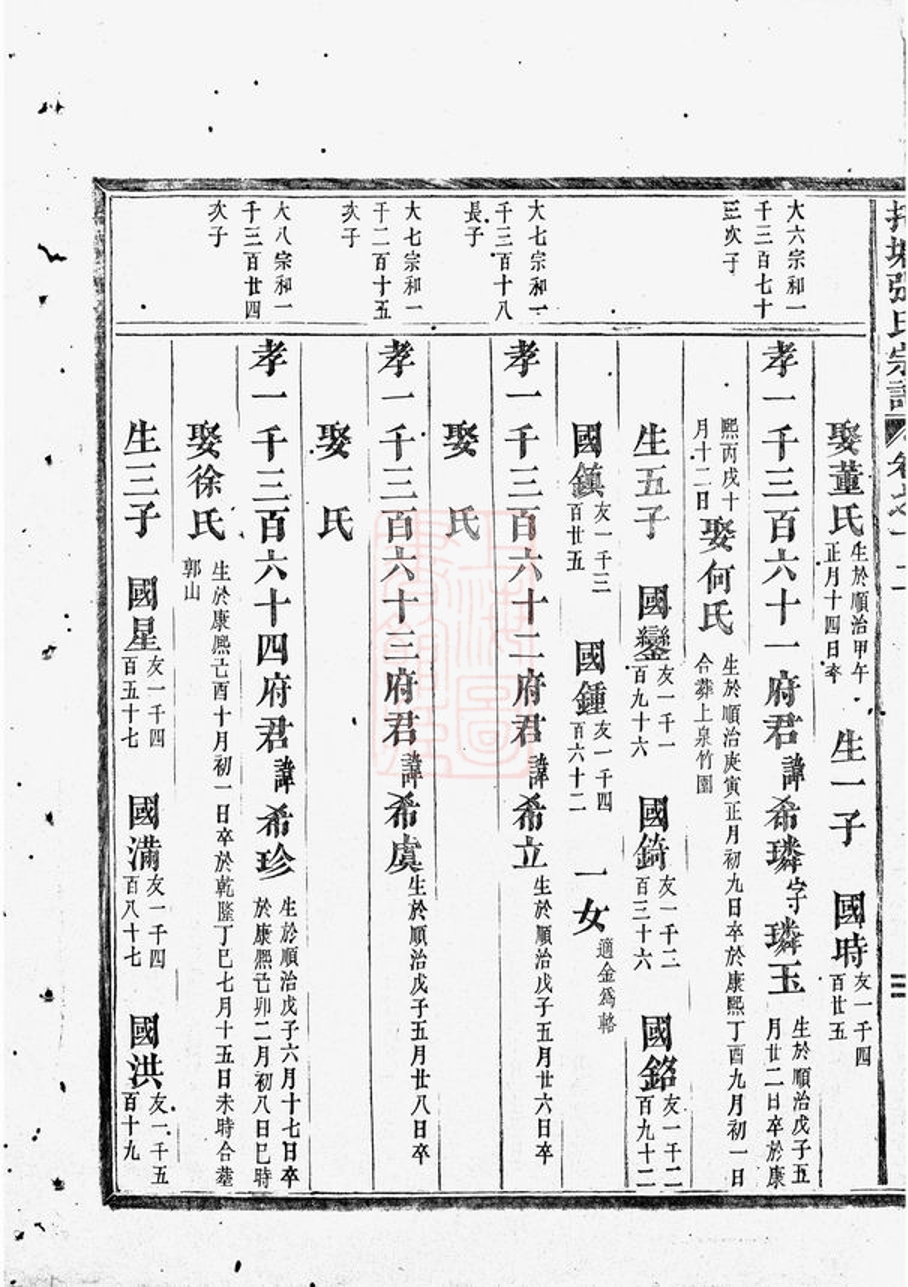 張氏宗譜
卷之十二
娶董氏 生於順治甲午正月十四日卒 生一子 國時 友一千四百廿五
大六宗和一千三百七十三次子
孝一千三百六十一府君 諱希璘 字璘玉 生於順治戊子五月廿二日卒於康
熙丙戌十月十二日 娶何氏 生於順治庚寅正月初九日卒於康熙丁酉九月初一日合葬上泉竹園
生五子 國鑾 友一千一百九十六 國錡 友一千二百三十六 國銘 友一千二百九十二
國鎮 友一千三百廿五 國鍾 友一千四百六十二 一女 適金爲輅
大七宗和一千三百十八長子
孝一千三百六十二府君 諱希立 生於順治戊子五月廿六日卒
娶 氏
大七宗和一千二百十五次子
孝一千三百六十三府君 諱希虞 生於順治戊子五月廿八日卒
娶 氏
大八宗和一千三百廿四次子
孝一千三百六十四府君 諱希珍 生於順治戊子六月十七日卒於康熙己卯二月初八日巳時
娶徐氏 生於康熙己酉十月初一日卒於乾隆丁巳七月十五日未時合葬郭山
生三子 國星 友一千四百五十七 國滿 友一千四百八十七 國洪 友一千五百十九
上海圖書館藏